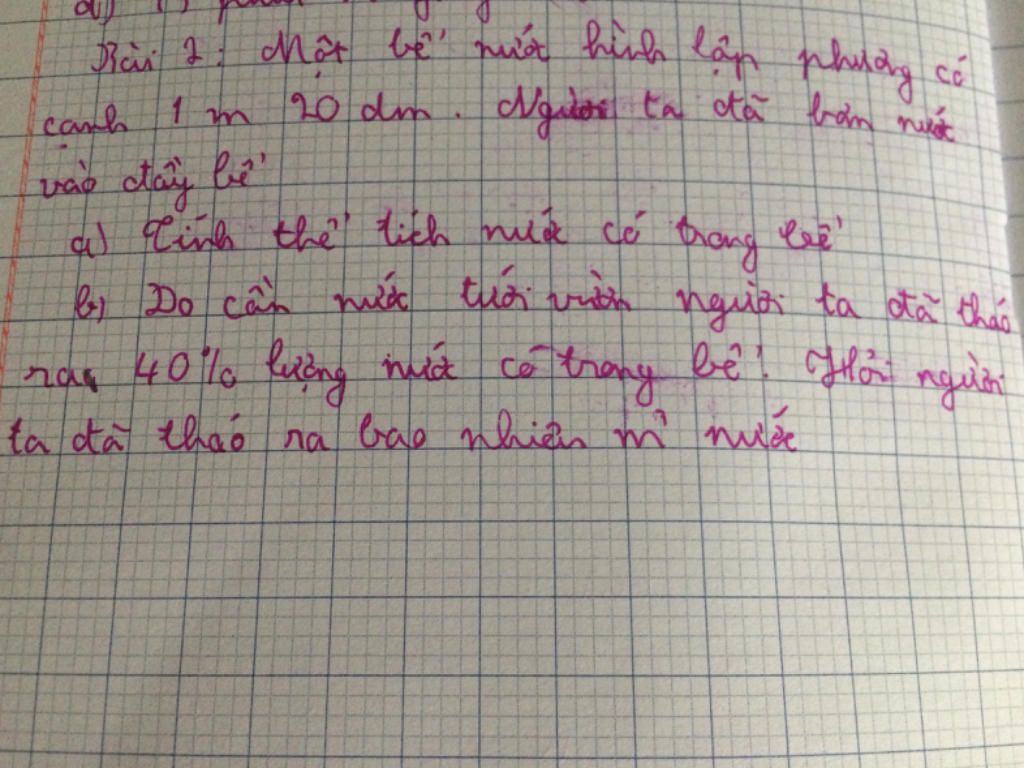 Bài 2: Một bể nước hình lập phương có
cạnh 1 m 20 dm. Người ta đã bơm nước
vào đầy bể
a) Tính thể tích nước có trong bể
b) Do cần nước tưới vườn người ta đã tháo
ra 40% lượng nước có trong bể. Hỏi người
ta đã tháo ra bao nhiên m³ nước